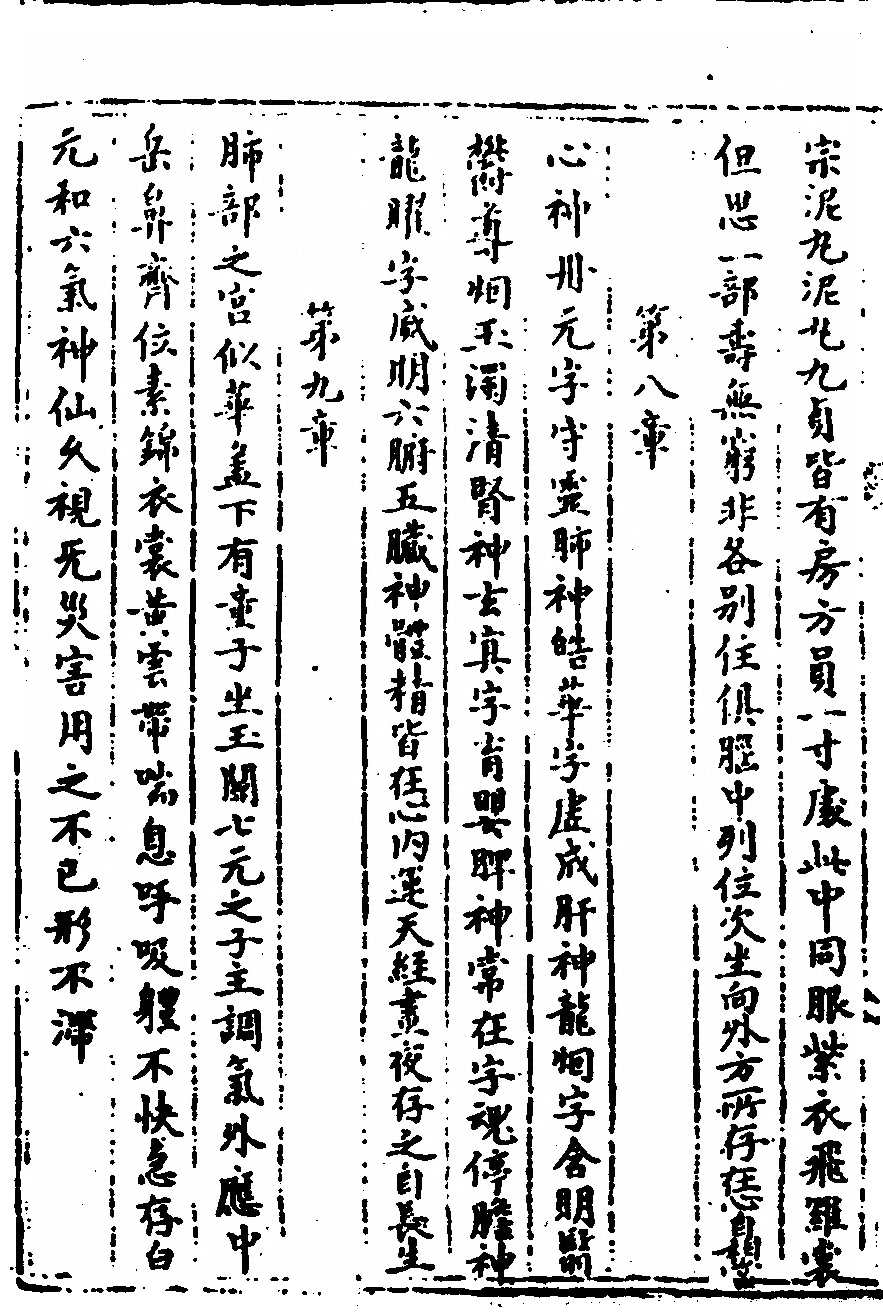 宗泥丸泥丸九貞皆有房方員一寸處此中同服紫衣飛羅裳
但思一部壽無窮非各別住俱腦中列位次坐向外方所存在心自相當
第八章
心神丹元字守靈肺神皓華字虛成肝神龍烟字含明翳
鬱導烟主濁清腎神玄冥字育嬰脾神常在字魂停膽神
龍曜字威明六腑五臟神體精皆在心內運天經晝夜存之自長生
第九章
肺部之宮似華盖下有童子坐玉闕七元之子主調氣外應中
岳鼻齊位素錦衣裳黃雲帶喘息呼吸體不快急存白
元和六氣神仙久視无災害用之不已形不滯